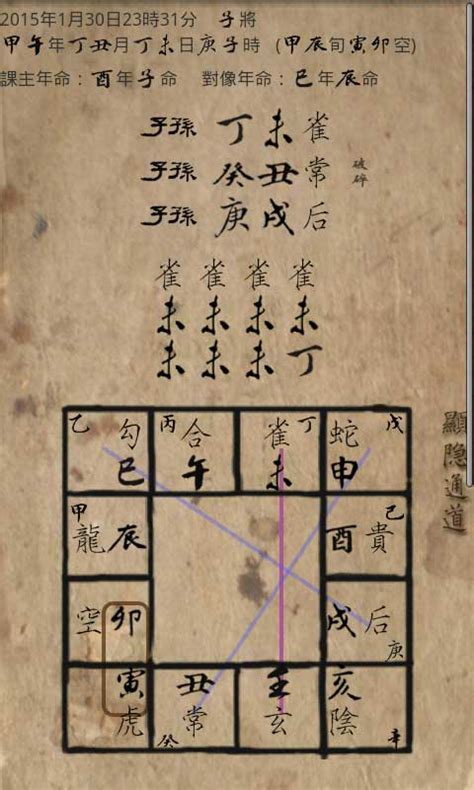 2015年1月30日23時31分 子將
甲午年丁丑月丁未日庚子時 (甲辰旬寅卯空)
課主年命：酉年子命 對像年命：巳年辰命
子孫 丁未雀
子孫 癸丑常 破碎
子孫 庚戌后
雀 雀 雀 雀
未 未 未 未
未 未 未 丁
乙 勾 丙 合 雀 丁 蛇 戊
巳 午 未 申
甲 己
龍 辰 酉 貴
空 卯 戌 后
庚
寅 丑 壬 亥
虎 常 玄 陰
癸 辛
顯隐通道